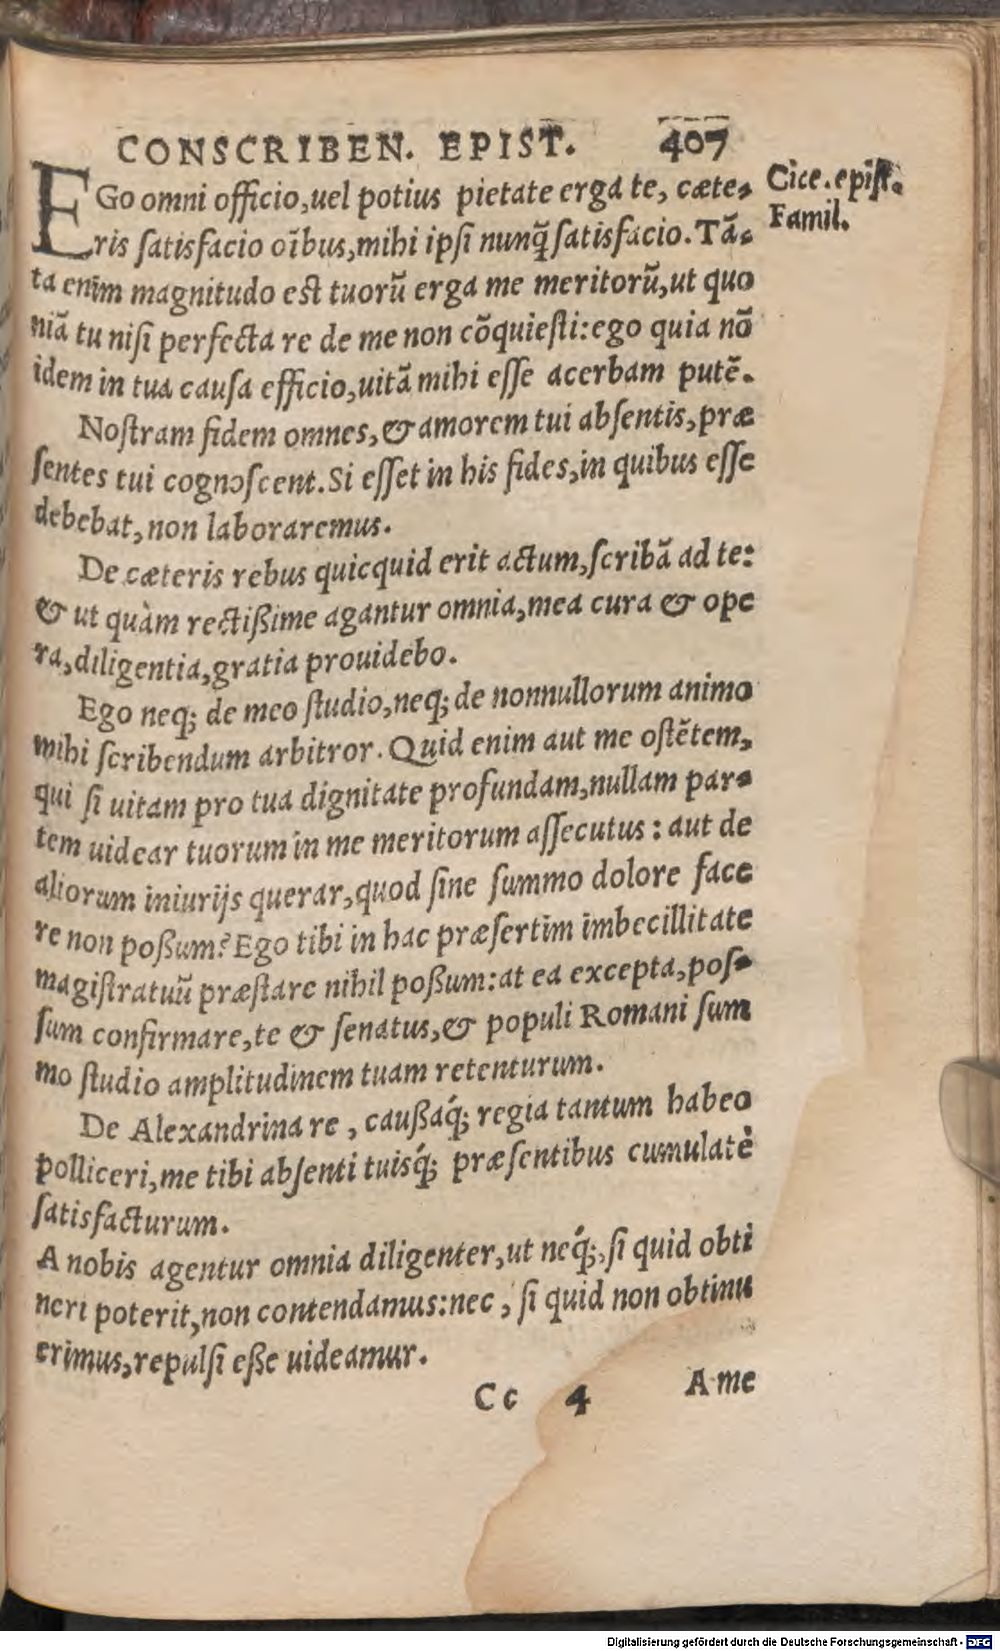 CONSCRIBEN. EPIST. 407
Cice. epist.
Famil.
EGo omni officio, uel potius pietate erga te, cæte-
ris satisfacio oībus, mihi ipsi nunq̃ satisfacio. Tā-
ta enim magnitudo est tuorū erga me meritorū, ut quo
niā tu nisi perfecta re de me non cōquiesti: ego quia nō
idem in tua causa efficio, uitā mihi esse acerbam putē.
Nostram fidem omnes, & amorem tui absentis, præ
sentes tui cognoscent. Si esset in his fides, in quibus esse
debebat, non laboraremus.
De cæteris rebus quicquid erit actum, scribā ad te:
& ut quàm rectißime agantur omnia, mea cura & ope
ra, diligentia, gratia prouidebo.
Ego neq; de meo studio, neq; de nonnullorum animo
mihi scribendum arbitror. Quid enim aut me ostētem,
qui si uitam pro tua dignitate profundam, nullam par-
tem uidear tuorum in me meritorum assecutus: aut de
aliorum iniurijs querar, quod sine summo dolore face
re non poßum? Ego tibi in hac præsertim imbecillitate
magistratuū præstare nihil poßum: at ea excepta, pos-
sum confirmare, te & senatus, & populi Romani sum
mo studio amplitudinem tuam retenturum.
De Alexandrina re, caußaq́; regia tantum habeo
polliceri, me tibi absenti tuisq́; præsentibus cumulatè
satisfacturum.
A nobis agentur omnia diligenter, ut neq́;, si quid obti
neri poterit, non contendamus: nec, si quid non obtinu
erimus, repulsi eße uideamur.
Cc 4 A me
Digitalisierung gefördert durch die Deutsche Forschungsgemeinschaft - DFG